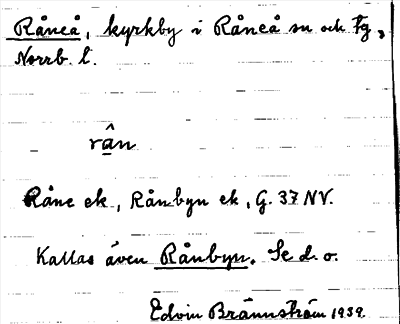 Råneå, kyrkby i Råneå sn och Fg,
Norrb. l.
rân
Råne ek, Rånbyn ek, G. 37 NV.
Kallas även Rånbyn. Se d. o.
Edvin Brännström 1939.